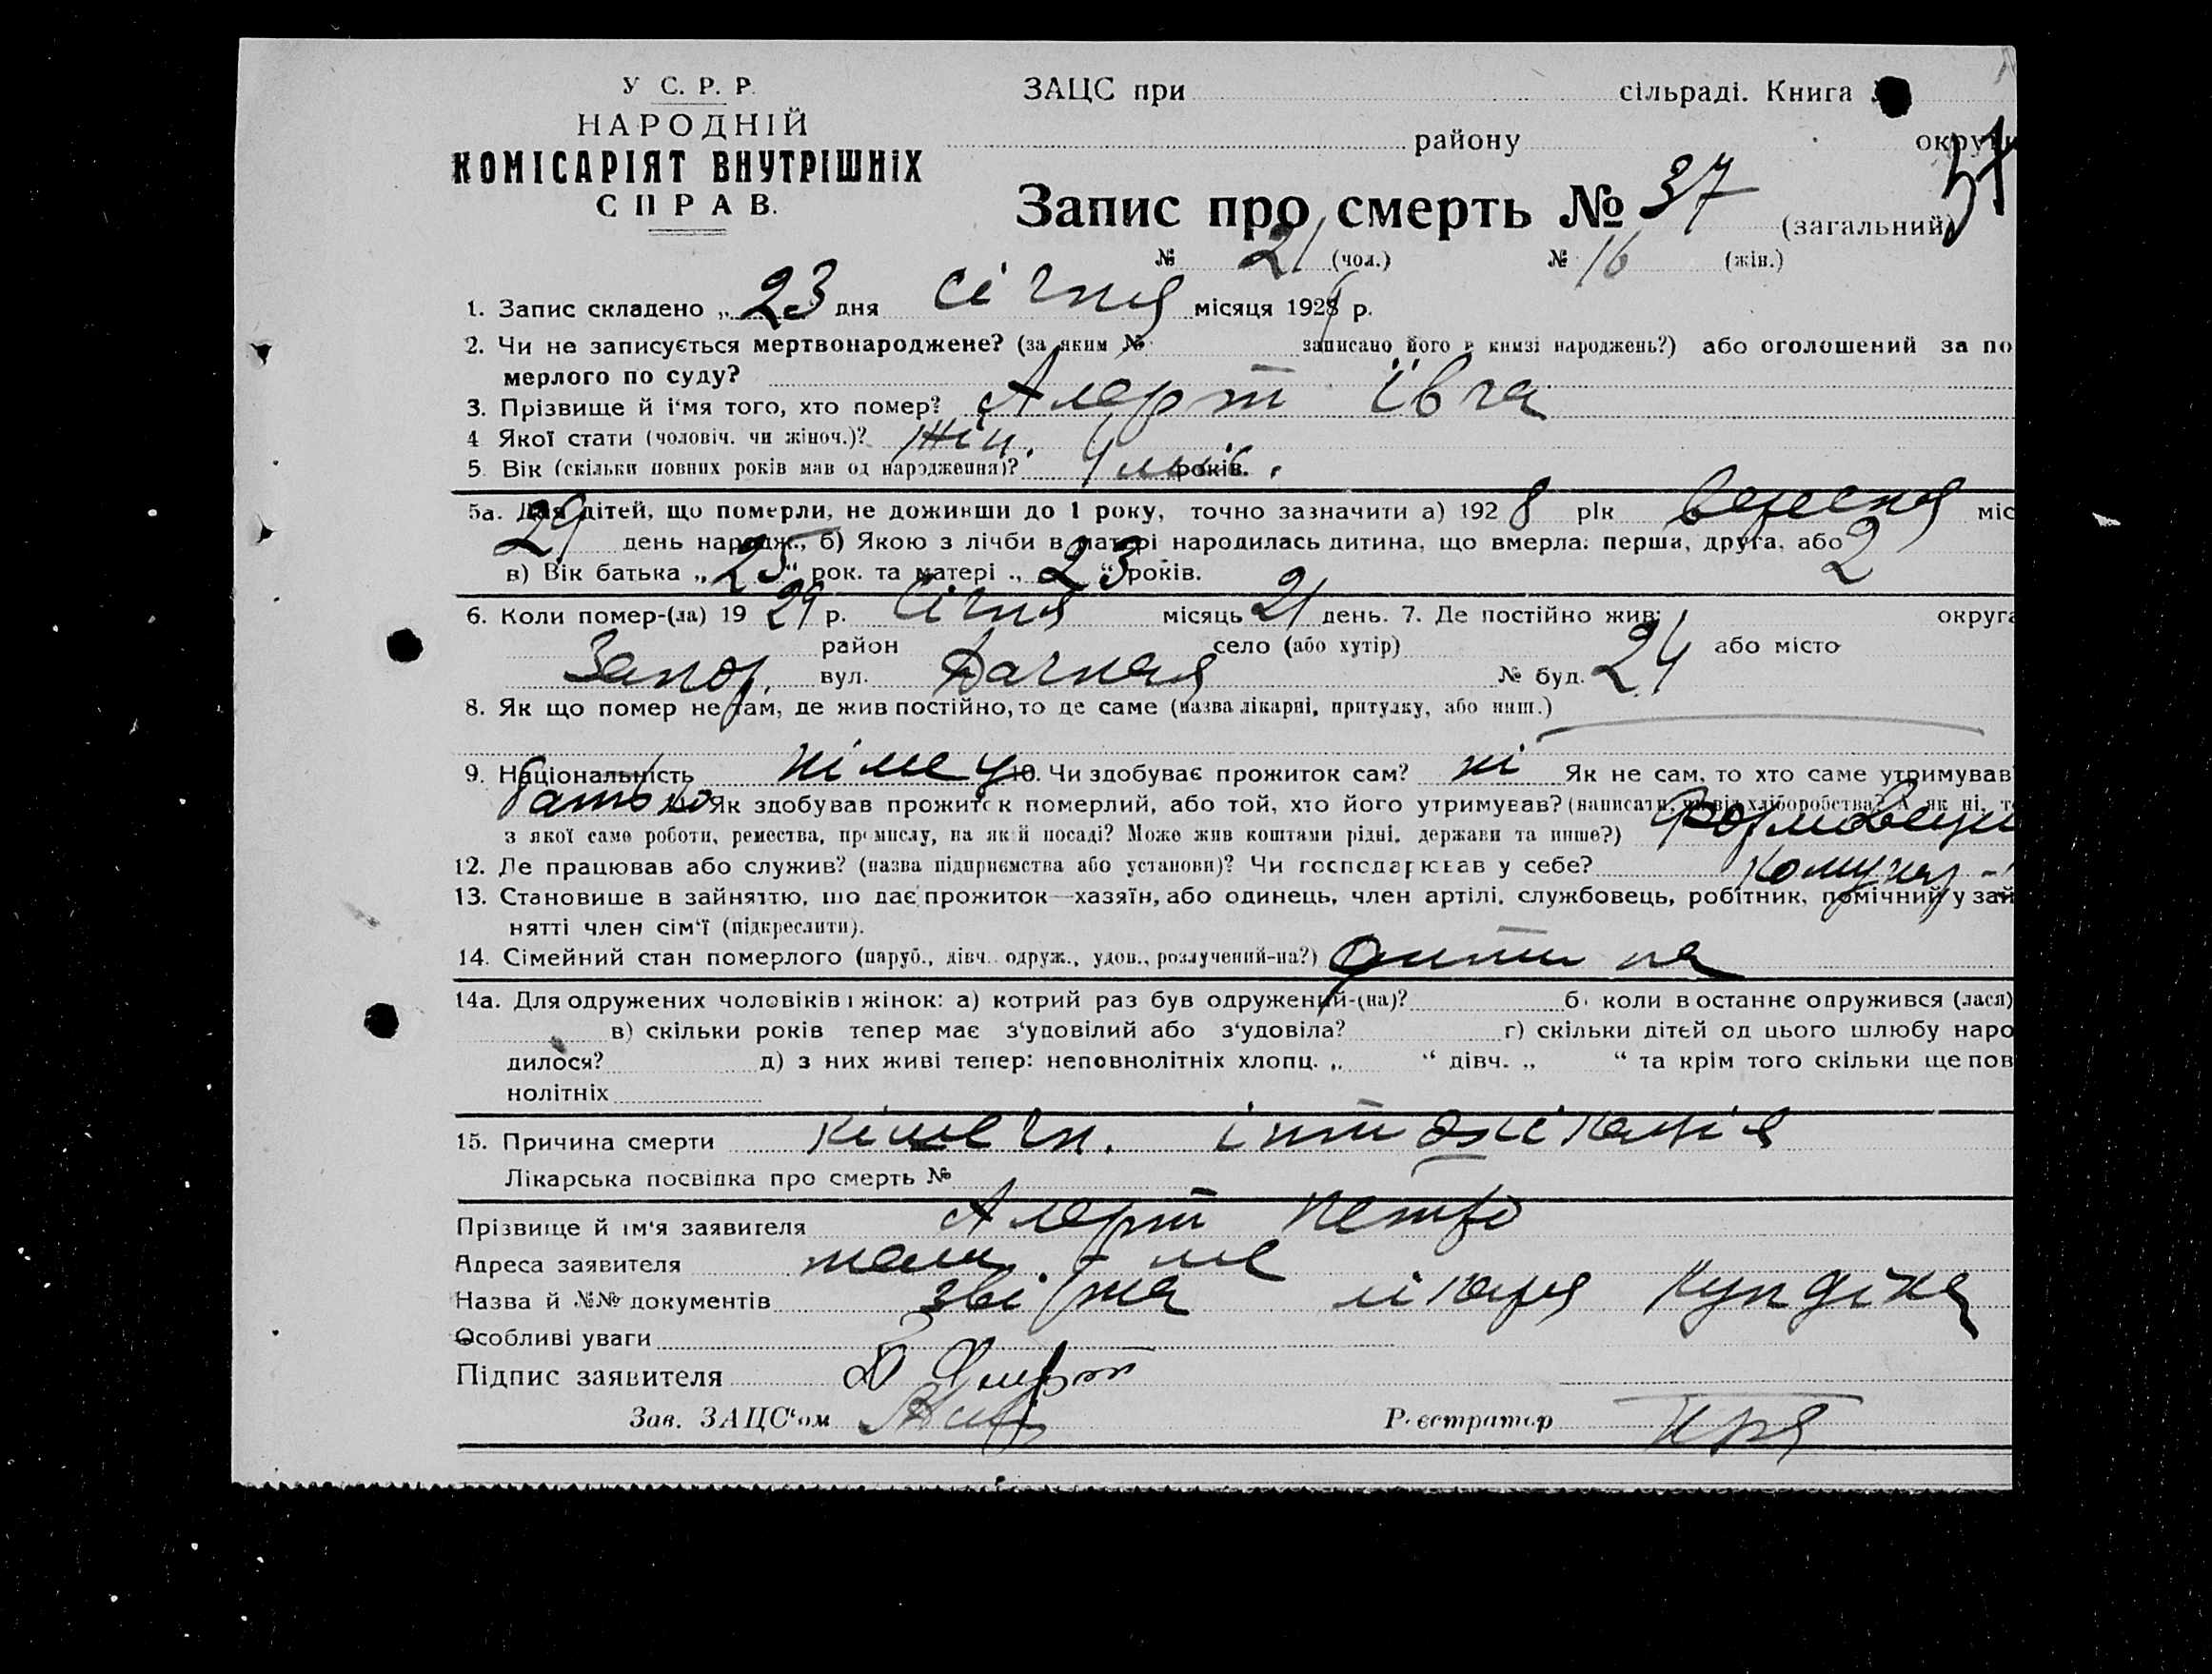 У С. Р. Р.
НАРОДНІЙ
КОМІСАРІЯТ ВНУТРІШНІХ
СПРАВ.
ЗАЦС при сільраді. Книга
району округи
Запис про смерть № 37 (загальний)
№ 21 (чол.) № 16 (жін.)
1. Запис складено „ 23 дня січня місяця 192 р.
2. Чи не записується мертвонароджене? (за яким № записано його в книзі народжень?) або оголошений за по
мерлого по суду?
3. Прізвище й ім'я того, хто помер? Алерт Ївга
4 Якої стати (чоловіч. чи жіноч.)? Жін.
5. Вік (скільки повних років мав од народження)? 4 років.
5а. Для дітей, що померли, не доживши до 1 року, точно зазначити а) 192 8 рік вересня міс
29 день народж., б) Якою з лічби в матері народилась дитина, що вмерла: перша, друга, або 2
в) Вік батька „ 25 “ рок. та матері „ 23 “ років.
6. Коли помер-(ла) 19 29 р. Січня місяць 21 день. 7. Де постійно жив: округа
район село (або хутір) або місто
Запор. вул. Дачная № буд. 24
8. Як що помер не там, де жив постійно, то де саме (назва лікарні, притулку, або инш.)
9. Національність німец 10. Чи здобуває прожиток сам? ні Як не сам, то хто саме утримував
батько Як здобував прожиток померлий, або той, хто його утримував? (написати, чи від хліборобства? А як ні, то
з якої саме роботи, ремества, промислу, на якій посаді? Може жив коштами рідні, держави та инше?) Формовщик
12. Де працював або служив? (назва підприємства або установи)? Чи господарював у себе? Комунар
13. Становище в зайняттю, що дає прожиток—хазяїн, або одинець, член артілі, службовець, робітник, помічний у зай
нятті член сім'ї (підкреслити).
14. Сімейний стан померлого (паруб., дівч. одруж., удов., розлучений-на?) Дитина
14а. Для одружених чоловіків і жінок: а) котрий раз був одружений-(на)? б) коли востаннє одружився (лася)
в) скільки років тепер має з'удовілий або з'удовіла? г) скільки дітей од цього шлюбу наро
дилося? д) з них живі тепер: неповнолітніх хлопц. „ “ дівч. „ “ та крім того скільки ще пов
нолітніх
15. Причина смерти кішечн. інтоксікація
Лікарська посвідка про смерть №
Прізвище й ім'я заявителя Алерт Петро
Адреса заявителя там - же
Назва й №№ документів звістка лікаря Кундіна
Особливі уваги
Підпис заявителя
Зав. ЗАЦС'ом
Реєстратор